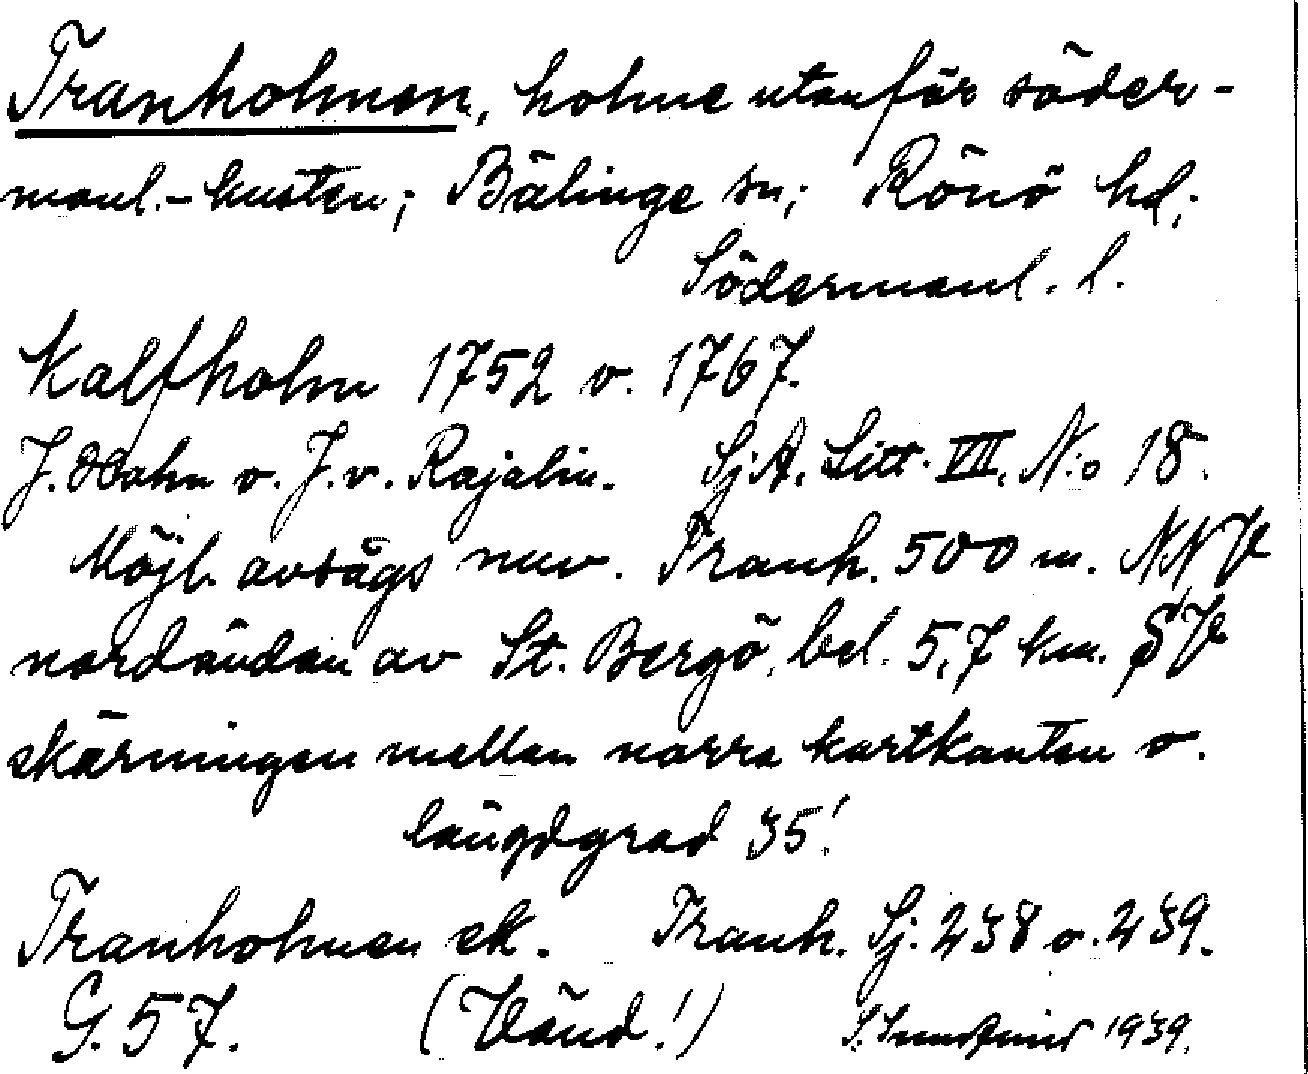 Tranholmen, holme utanför söder-
manl.-kusten; Bälinge sn; Rönö hd;
Södermanl. l.
Kalfholm 1752 o. 1767.
J. Hahn o. J. v. Rajalin. Sj.A. Litt. VII. N:o 18.
Möjl. avsågs nuv. Tranh. 500 m. NNV
nordändan av St. Bergö, bel. 5,7 km. SV
skärningen mellan norra kartkanten o.
längdgrad 35'.
Tranholmen ek. Tranh. Sj. 238 o. 239.
G. 57. (Vänd!) 1939.